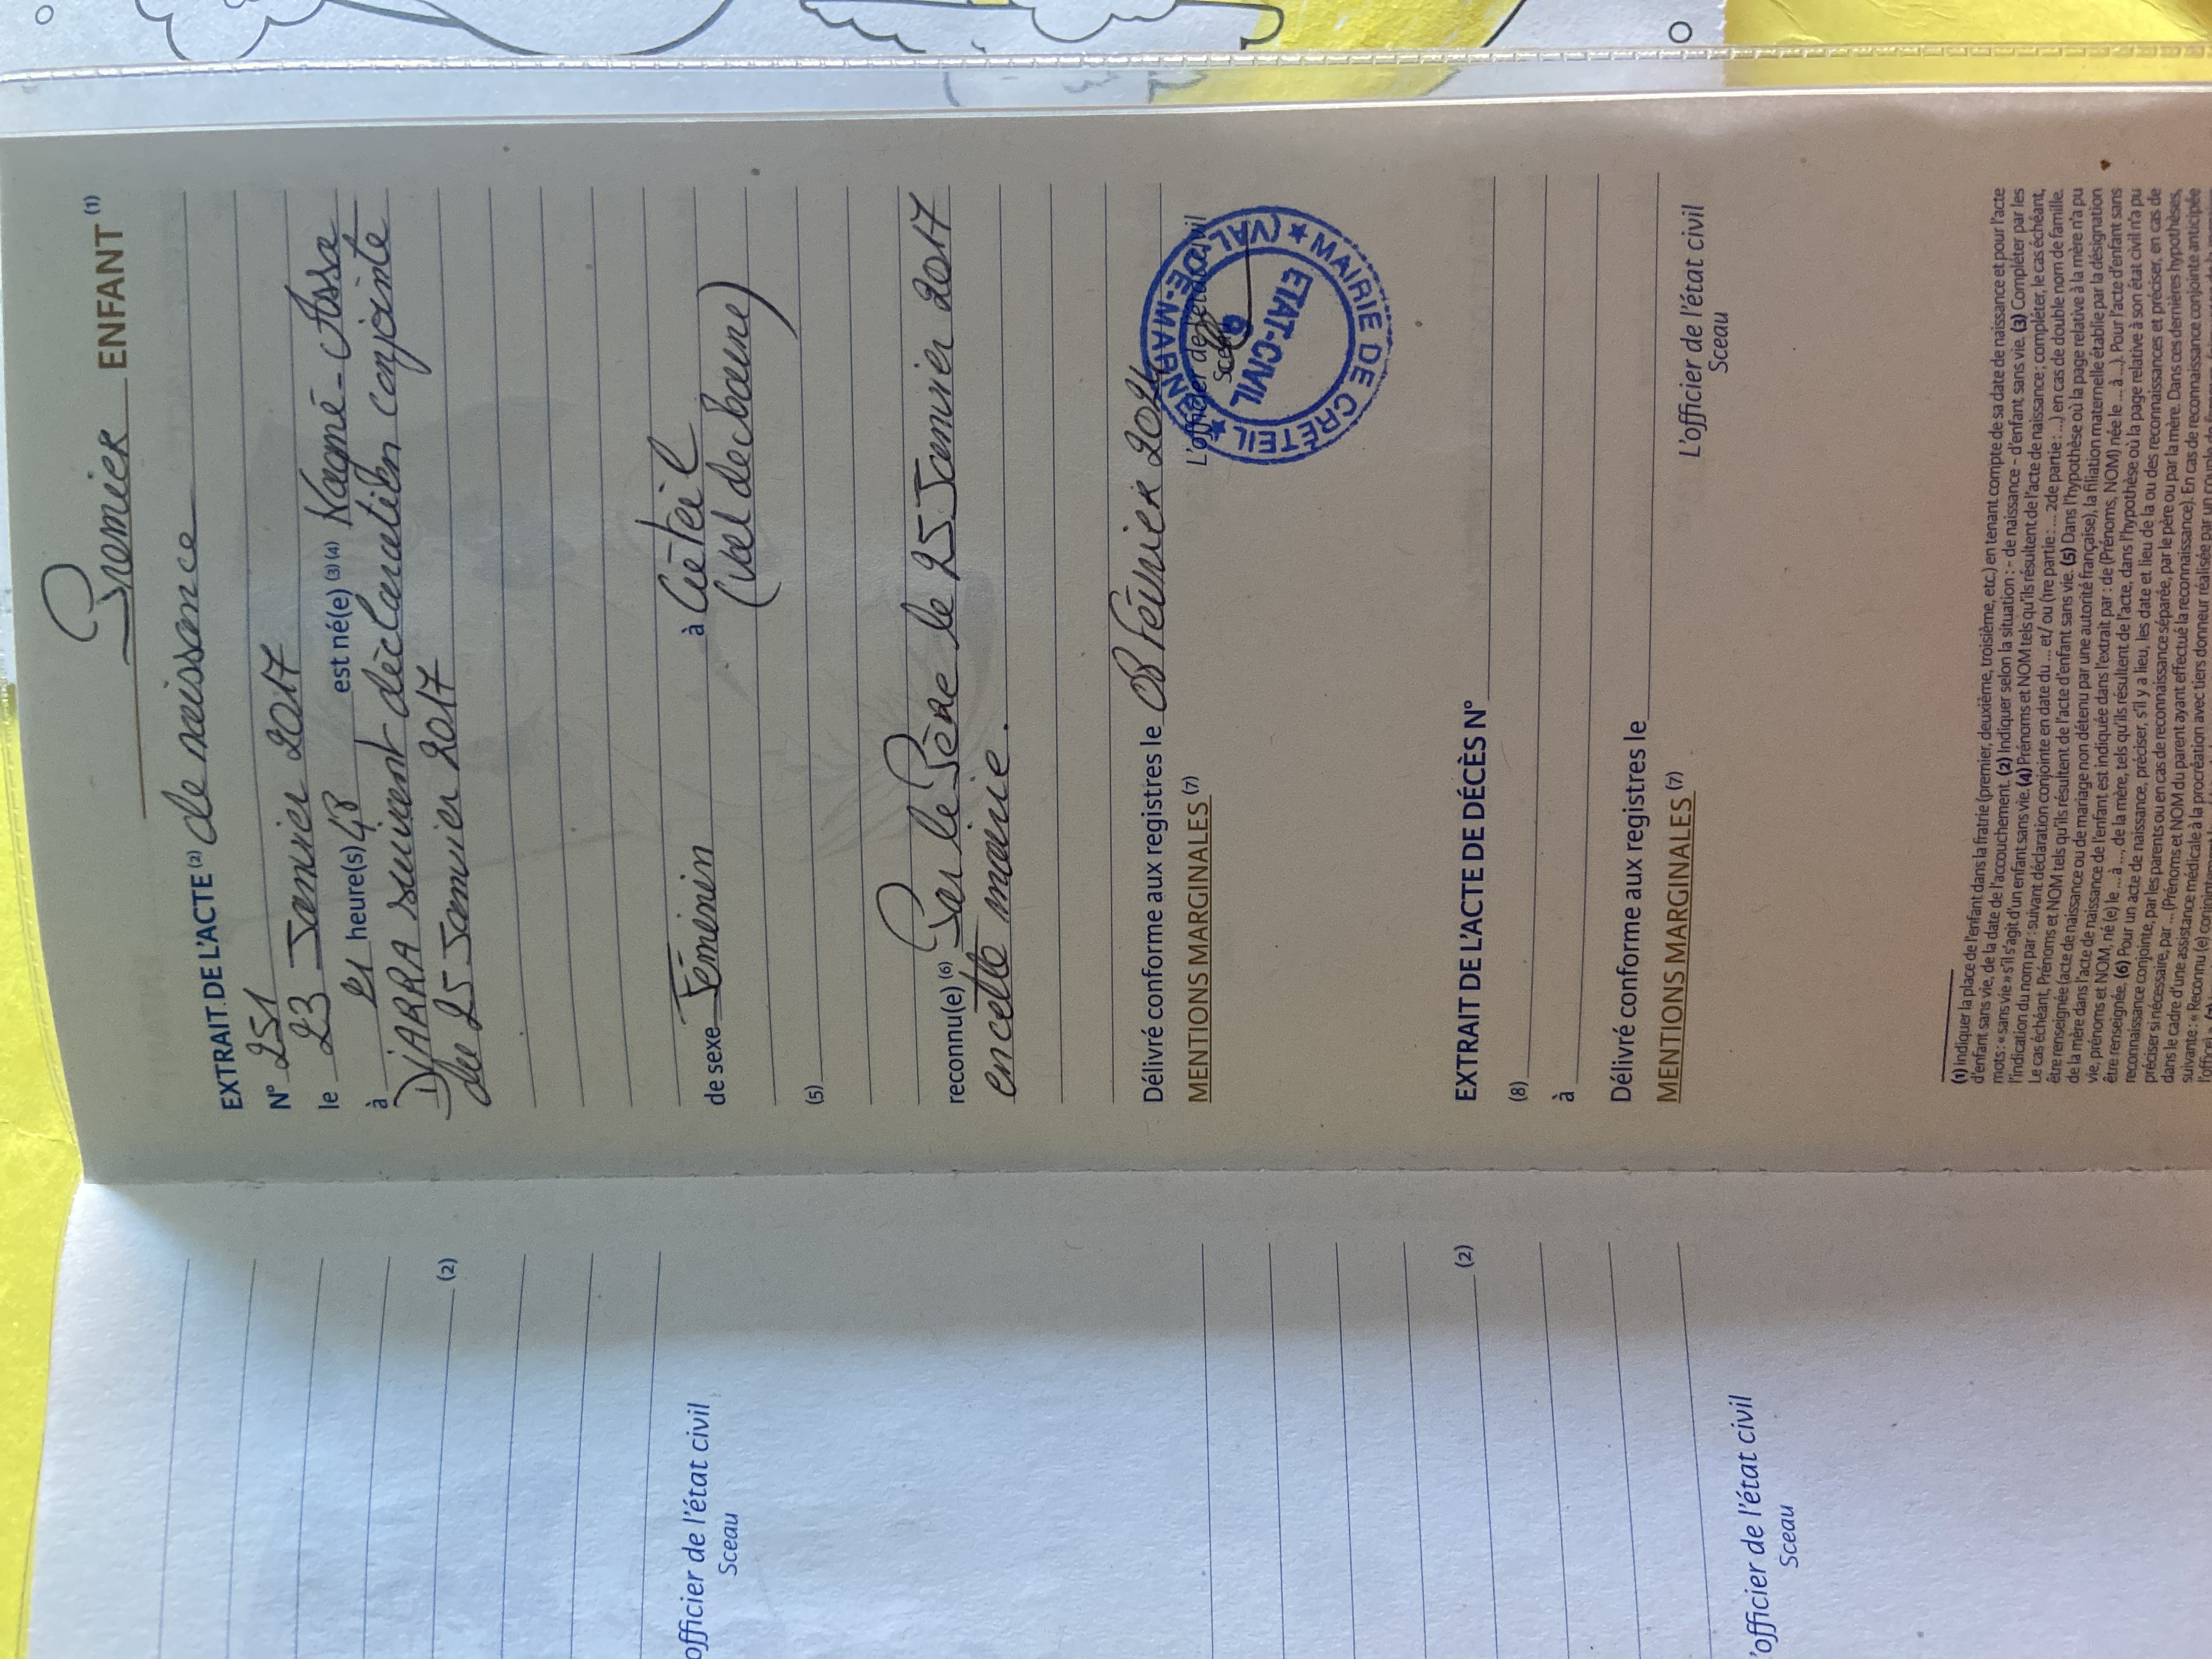 Premier ENFANT (1)
EXTRAIT DE L'ACTE (2) de naissance
N° 251
le 23 Janvier 2017
à heure(s) 48 est né(e) (3) (4) Nagné - Assa
DIARRA suivant déclaration conjointe
du 25 Janvier 2017
de sexe Féminin à Créteil
(Val de Marne)
(5)
reconnu(e) (6) Par le Père le 25 Janvier 2017
en cette mairie.
Délivré conforme aux registres le 08 Février 2024
MENTIONS MARGINALES (7) L'officier de l'état civil
Sceau
MAIRIE DE CRÉTEIL ★ (VAL-DE-MARNE) ★
ETAT-CIVIL
6
EXTRAIT DE L'ACTE DE DÉCÈS N°
(8)
à
Délivré conforme aux registres le
MENTIONS MARGINALES (7) L'officier de l'état civil
Sceau
(1) Indiquer la place de l'enfant dans la fratrie (premier, deuxième, troisième, etc.) en tenant compte de sa date de naissance et pour l'acte
d'enfant sans vie, de la date de l'accouchement. (2) Indiquer selon la situation : - de naissance - d'enfant sans vie. (3) Compléter par les
mots : « sans vie » s'il s'agit d'un enfant sans vie. (4) Prénoms et NOM tels qu'ils résultent de l'acte de naissance ; compléter, le cas échéant,
l'indication du nom par : suivant déclaration conjointe en date du ... et/ ou (1re partie : ... 2de partie : ...) en cas de double nom de famille.
Le cas échéant, Prénoms et NOM tels qu'ils résultent de l'acte d'enfant sans vie. (5) Dans l'hypothèse où la page relative à la mère n'a pu
être renseignée (acte de naissance ou de mariage non détenu par une autorité française), la filiation maternelle établie par la désignation
de la mère dans l'acte de naissance de l'enfant est indiquée dans l'extrait par : de (Prénoms, NOM) née le ... à ...). Pour l'acte d'enfant sans
vie, prénoms et NOM, né (e) le ... à ..., de la mère, tels qu'ils résultent de l'acte, dans l'hypothèse où la page relative à son état civil n'a pu
être renseignée. (6) Pour un acte de naissance, préciser, s'il y a lieu, les date et lieu de la ou des reconnaissances et préciser, en cas de
reconnaissance conjointe, par les parents ou en cas de reconnaissance séparée, par le père ou par la mère. Dans ces dernières hypothèses,
préciser si nécessaire, par ... (Prénoms et NOM du parent ayant effectué la reconnaissance). En cas de reconnaissance conjointe anticipée
dans le cadre d'une assistance médicale à la procréation avec tiers donneur réalisée par un couple de femmes,
suivante : « Reconnu (e) conjointement
(2)
officier de l'état civil
Sceau
(2)
'officier de l'état civil
Sceau